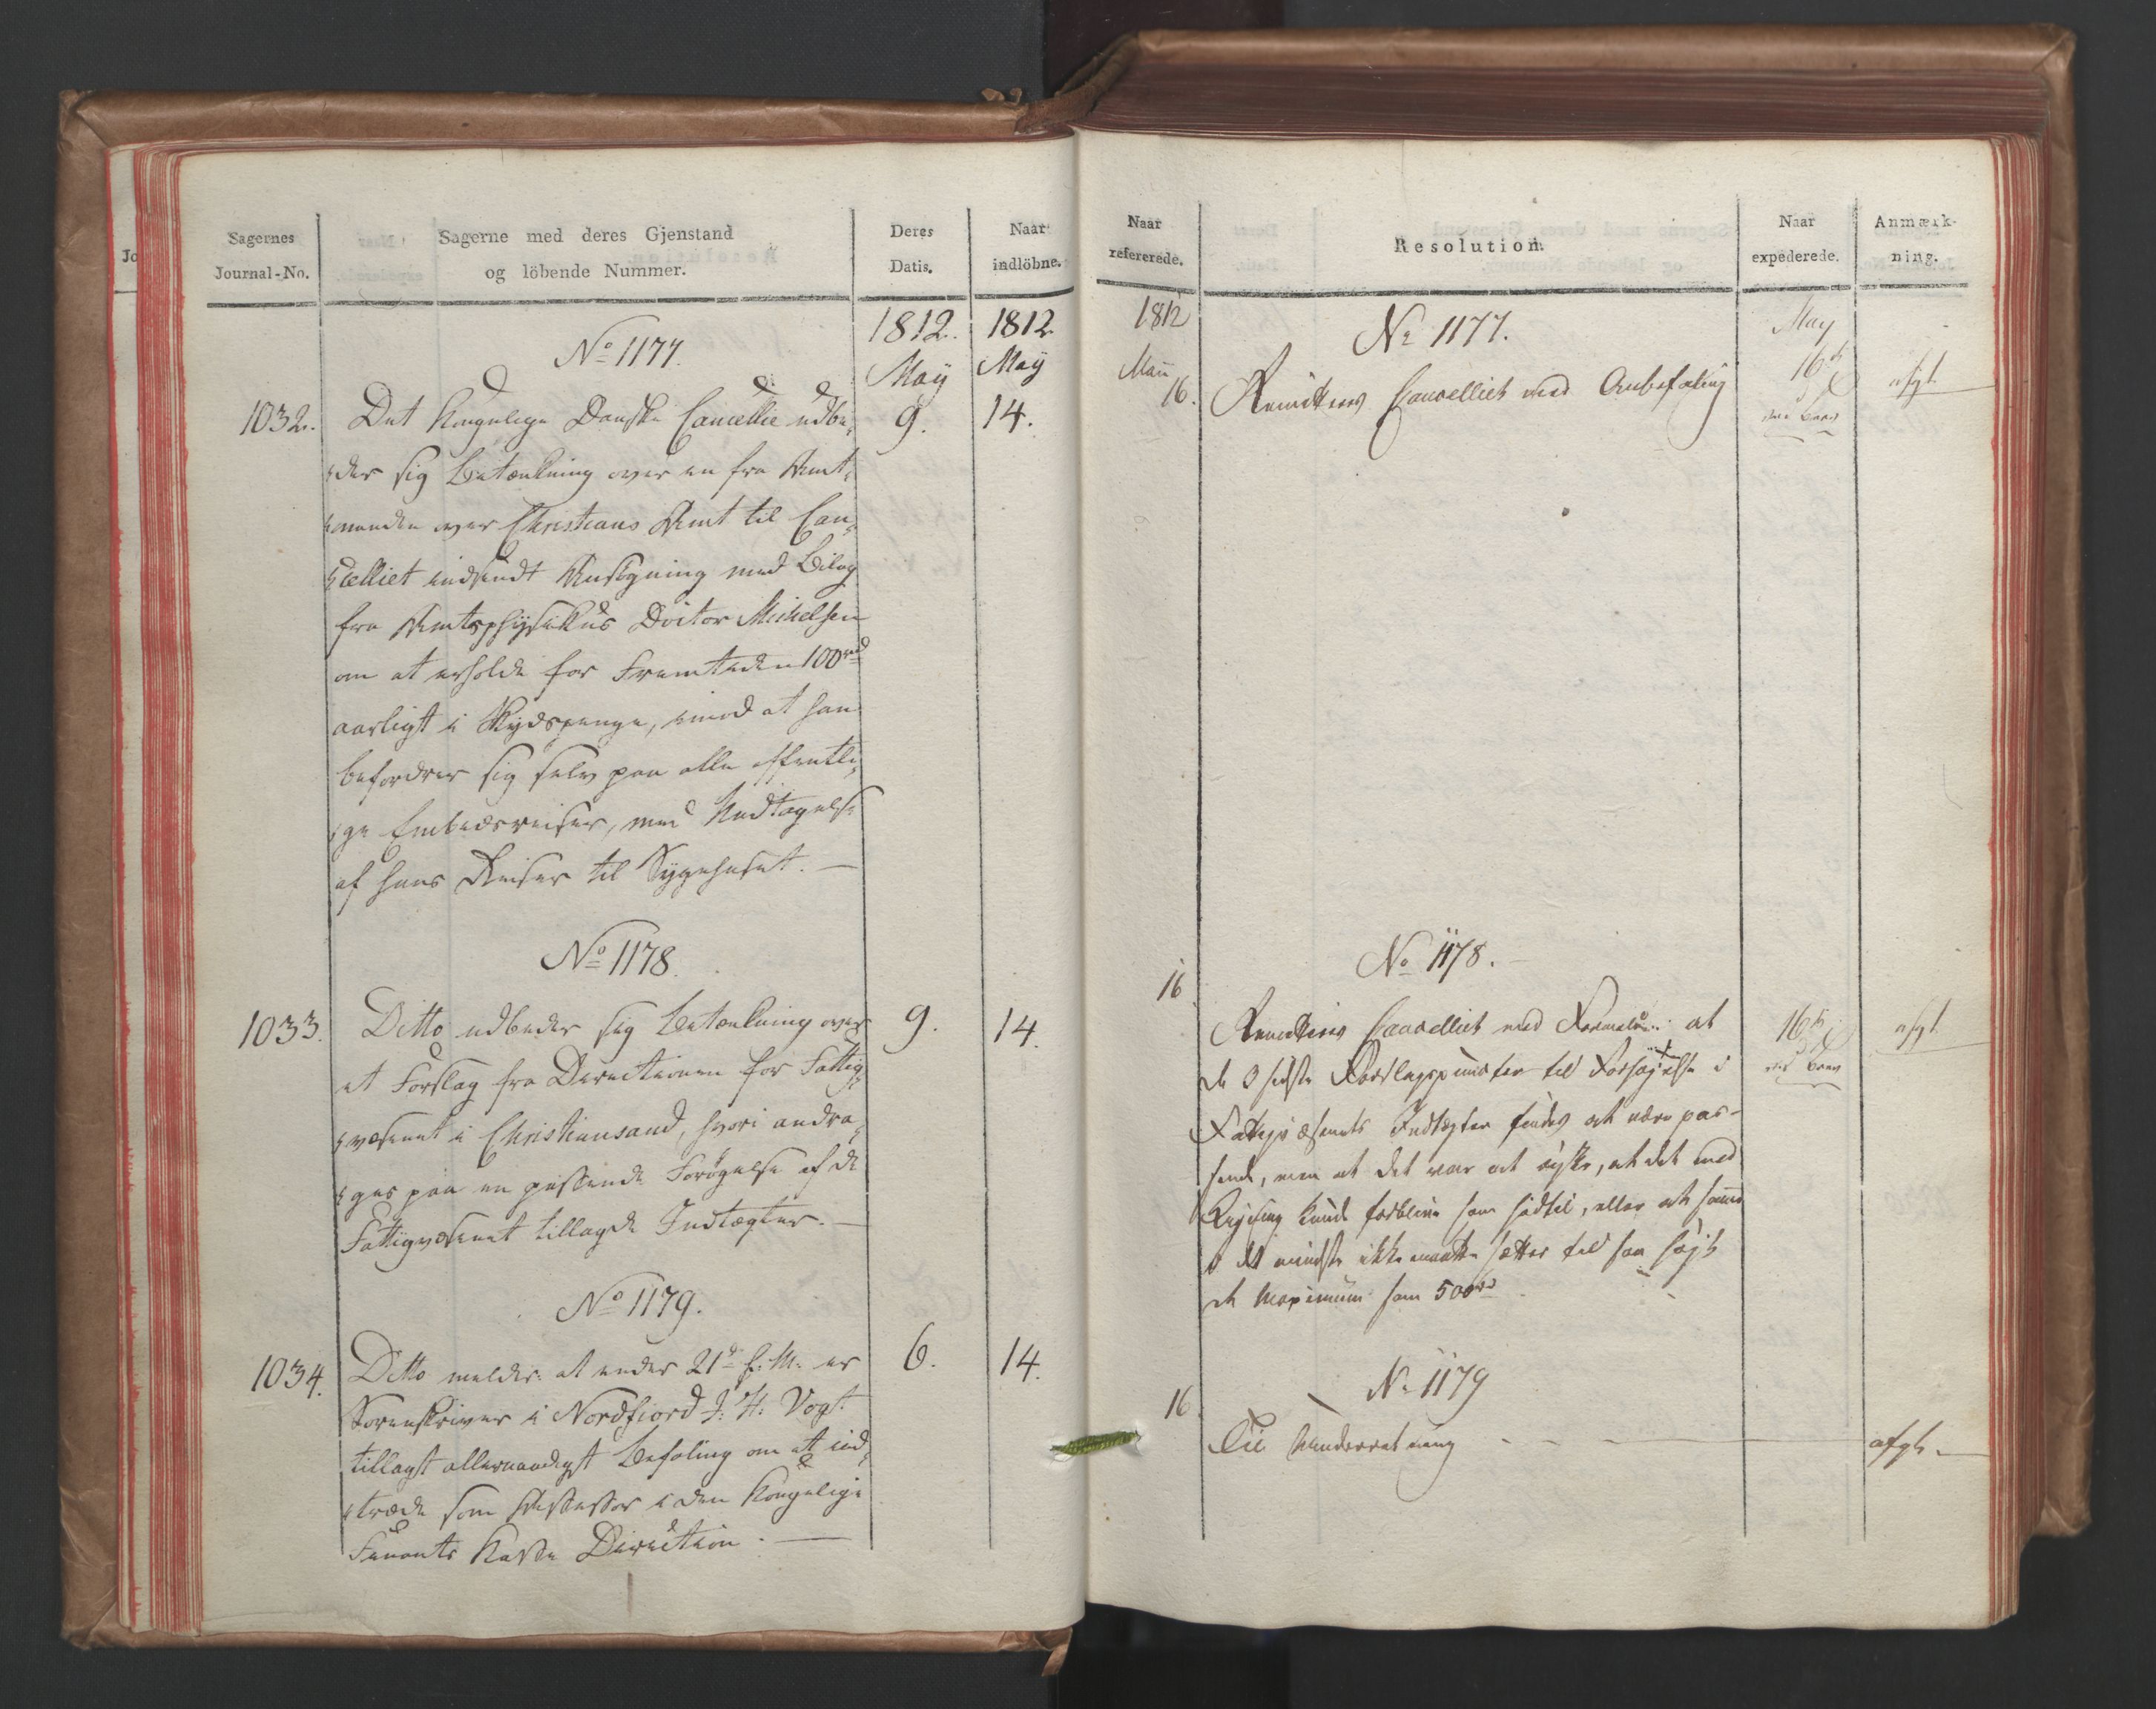 Sagernes
Journal-No.
Sagerne med deres Gjenstand
og löbende Nummer.
Deres
Datis.
Naar
indlöbne.
1812.
May
1812
May
No 1177.
1032.
Det Kongelige Danske Cancellie udbe-
der sig Betænkning over en fra Amt-
manden over Christians Amt til Can-
celliet indsendt Ansøgning med Bilag
fra Amtsphysikus Doctor Michelsen
om at erholde for Fremtiden 100 rd
aarligt i Skydspenge, imod at han
befordrer sig selv paa alle offentli-
ge Embedsreiser, med Undtagelse
af hans Reiser til Sygehuset. —
9.
14.
No 1178.
1033.
Ditto udbeder sig Betænkning over
et Forslag fra Directionen for Fattig-
væsenet i Christiansand, hvori andra-
ges paa en passende Forøgelse af de
Fattigvæsenet tillagde Indtægter. —
9.
14.
No 1179.
1034.
Ditto melder: at under 21de f: M: er
Sorenskriver i Nordfiord J: H: Vogt
tillagt allernaadigst Befaling om at ind-
træde som Assessor i den Kongelige
Finants Kasse Direction. —
6.
14.
Naar
refererede.
Resolution.
Naar
expederede.
Anmærk-
ning.
1812
Maii
16.
No 1177.
Remitteres Cancelliet med Anbefaling
May
16de
ved Brev
afgt
No 1178.
16
Remitteres Cancelliet med Formeld: at
de 3 sidste Forslagspuncter til Forhøjelse i
Fattigvæsenets Indtægter findes at være pas-
sende, men at det var at ønske, at det med
kunde forblive som hidtil, eller at samme
i det mindste ikke maatte sættes til saa højt
et Maximum som 500 rd
16de
ved Brev
afgt
No 1179
16
Til Underretning
afgt.